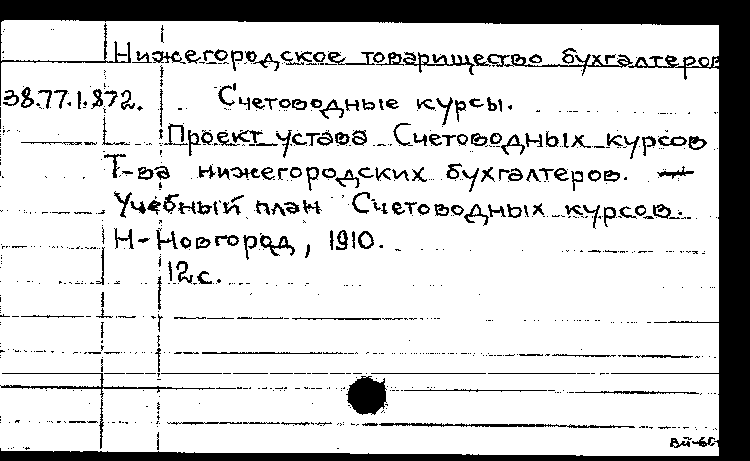 Нижегородское товарищество бухгалтеров
38.77.1.872. Счетоводные курсы.
Проект устава Счетоводных курсов
Т-ва нижегородских бухгалтеров. —
Учебный план Счетоводных курсов.
Н-Новгород, 1910.
12 с.